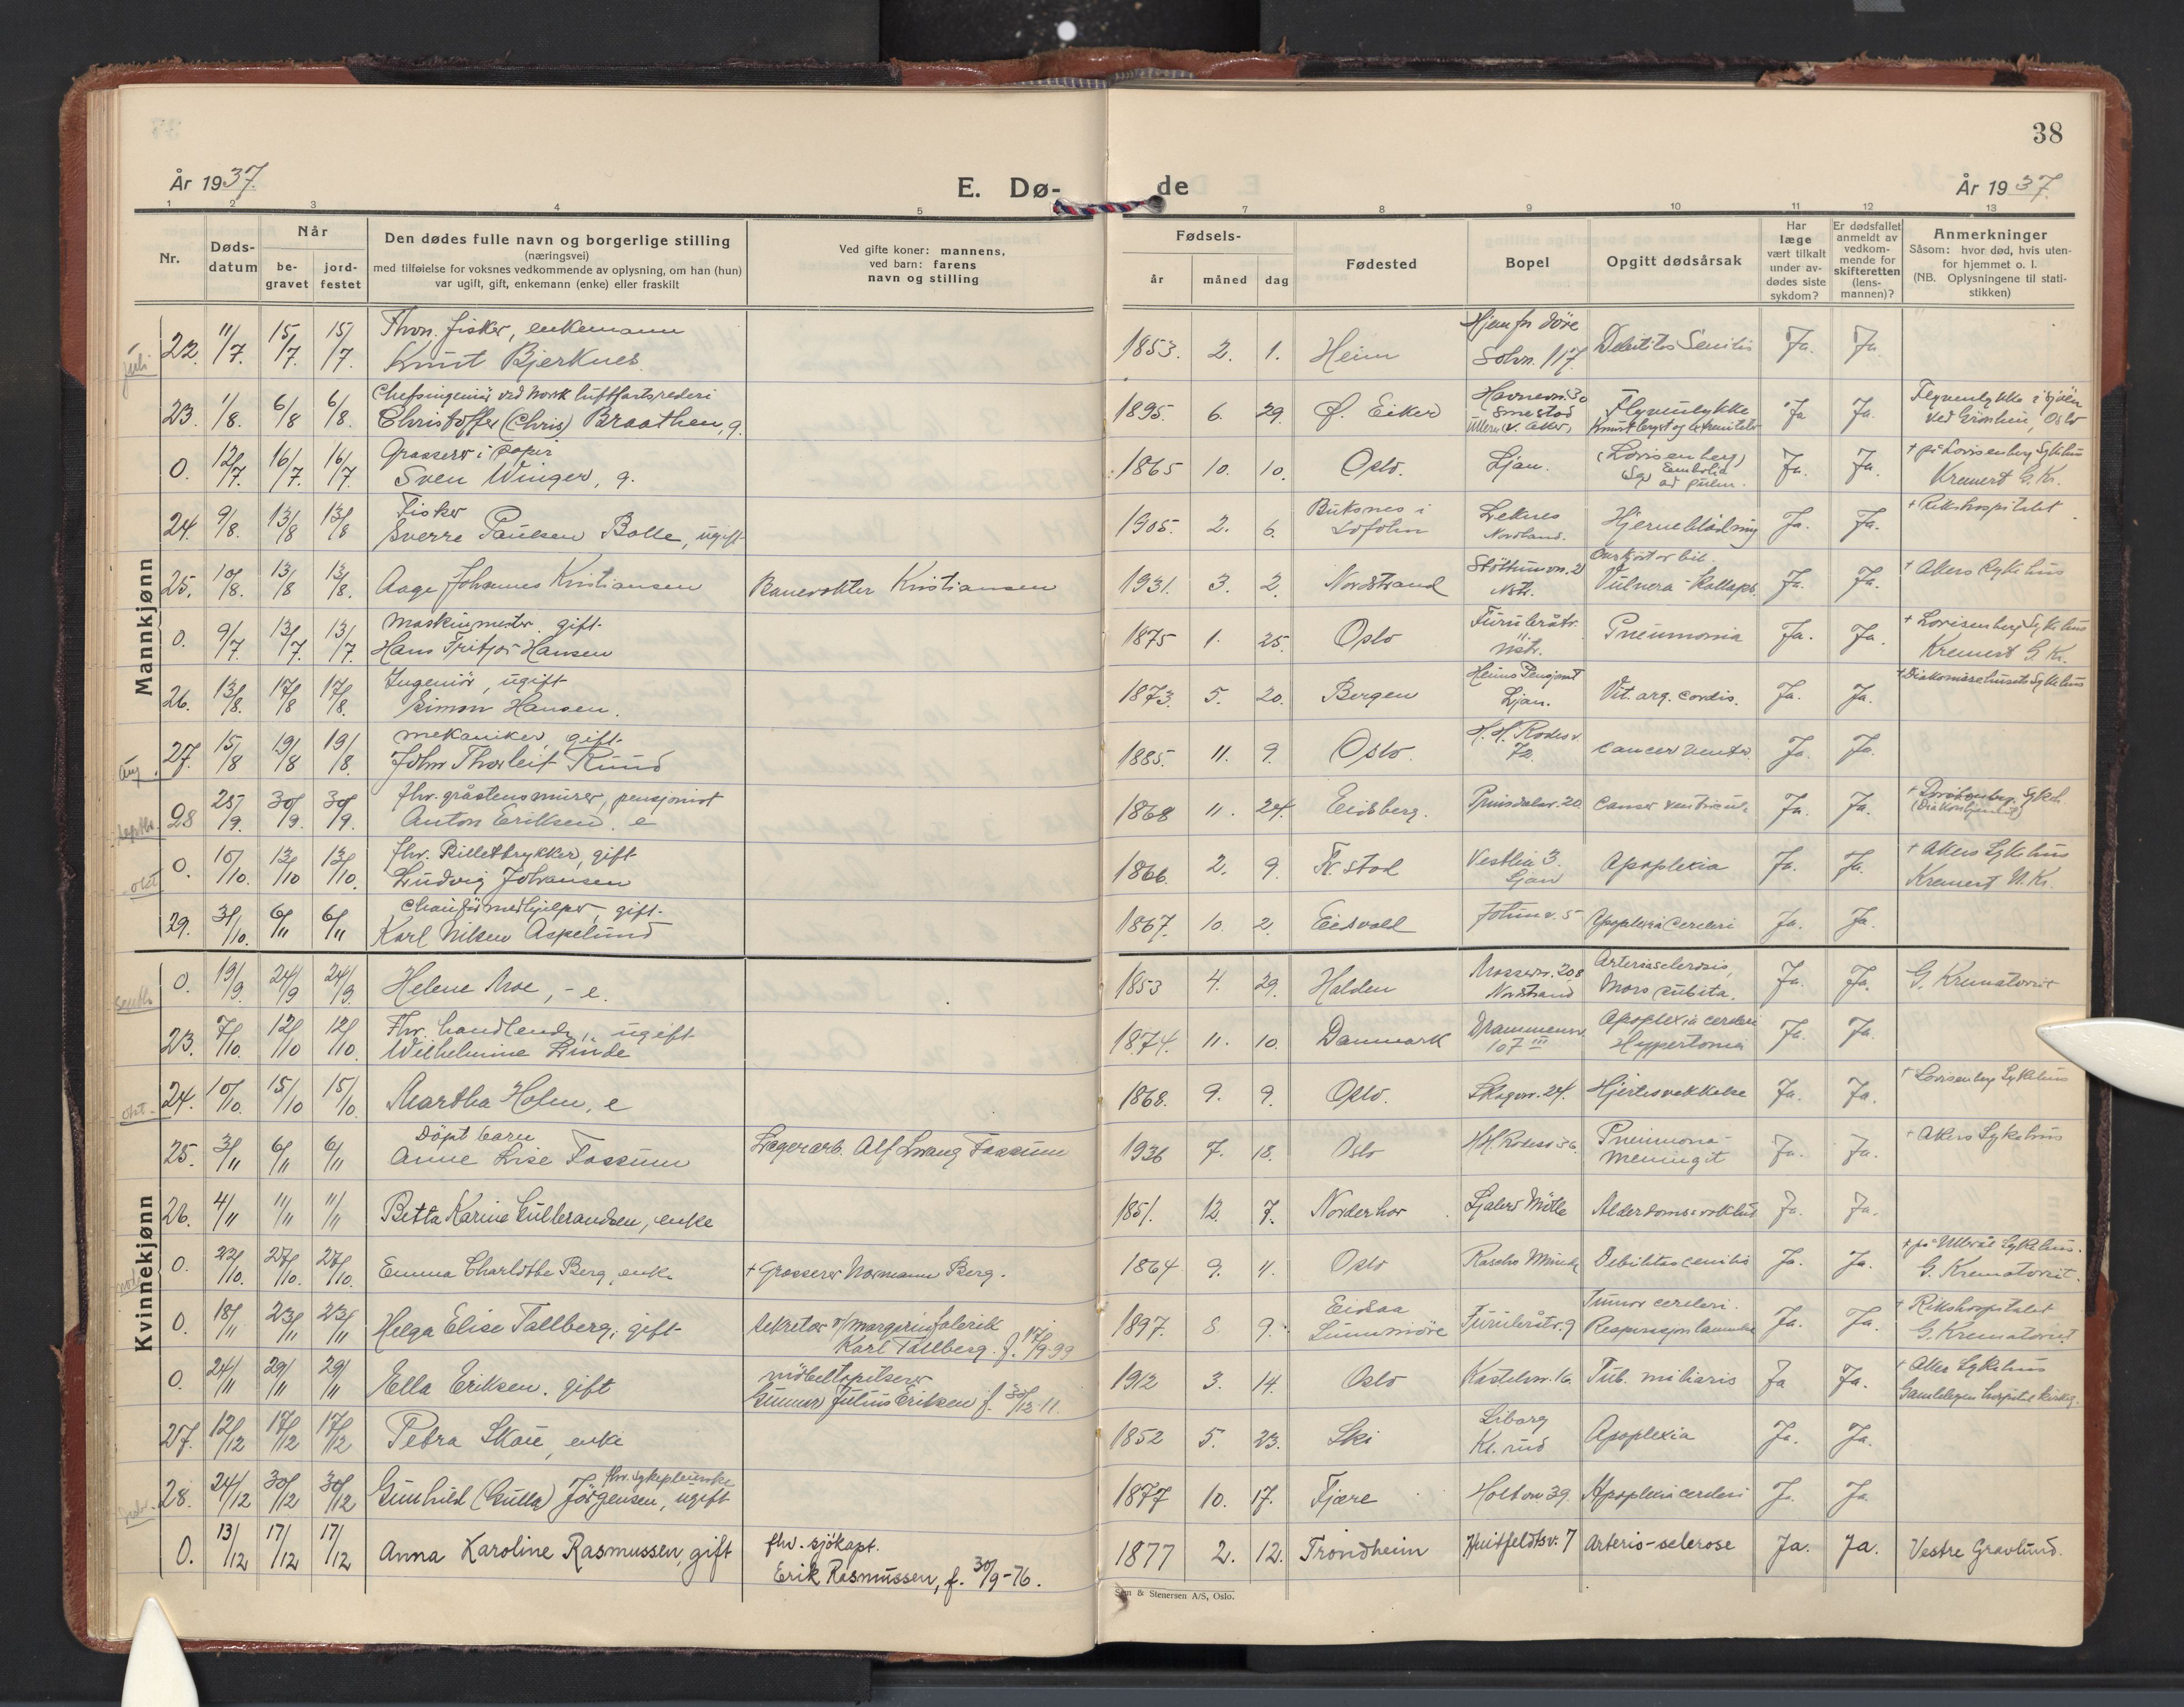 38
År 1937.
E. Dø-
de
År 1937.
1 2 3 4 5 7 8 9 10 11 12 13
Nr.
Døds-
datum
Når
be-
gravet
jord-
festet
Den dødes fulle navn og borgerlige stilling
(næringsvei)
med tilføielse for voksnes vedkommende av oplysning, om han (hun)
var ugift, gift, enkemann (enke) eller fraskilt
Ved gifte koner: mannens,
ved barn: farens
navn og stilling
Fødsels-
år måned dag
Fødested
Bopel
Opgitt dødsårsak
Har
læge
vært tilkalt
under av-
dødes siste
sykdom?
Er dødsfallet
anmeldt av
vedkom-
mende for
skifteretten
(lens-
mannen)?
Anmerkninger
Såsom: hvor død, hvis uten-
for hjemmet o. l.
(NB. Oplysningene til stati-
stikken)
Mannkjønn
juli
22. 11/7. 15/7. 15/7. fisker, enkemann
Knut Bjerknes.
1853. 2. 1. Heim Solvn. 117. Debilitas Senilis Ja. Ja
23. 1/8. 6/8 6/8. Chefsingeniør ved Norsk luftfartsrederi
Christoffer (Chris) Braathen, g.
1895. 6. 29. Ø. Eiker Havnevn. 30
Smestad
Ullern (V. Aker) Flyveulykke
Knust bryst og extremiteter Ja Ja. Flyveulykke i sjøen
ved Grønlien, Oslo
0. 12/7. 16/7. 16/7. Grosserer i papir
Sven Winger, g.
1865 10. 10. Oslo. Ljan. (Lovisenberg)
Embolia
ad pulm. Ja. Ja. † på Lovisenberg Sykehus
Kremert G. Kr.
24. 9/8. 13/8 13/8 Fisker
Sverre Paulsen Bolle, ugift
1905. 2. 6. Buksnes i
Lofoten Leknes
Nordland. Hjerneblødning Ja. Ja. † Rikshospitalet
25. 10/8. 13/8 13/8. Aage Johannes Kristiansen Banevokter Kristiansen
1931. 3. 2. Nordstrand Nstr. Overkjørt av bil.
Vulnera - Kollaps. Ja. Ja. † Akers Sykehus
0. 9/7. 13/7. 13/7. Maskinmester, gift.
Hans Fritjof Hansen
1875 1. 25. Oslo Furuleråtr.
11.
Nstr. Pneumonia Ja. Ja. † Lovisenberg Sykehus
Kremert G. Kr.
26. 13/8. 17/8 17/8. Ingeniør, ugift
Simon Hansen.
1873. 5. 20. Bergen Heims Pensjonat
Ljan. Vit. org. cordis. Ja. Ja. † Diakonissehusets Sykehus
Aug.
27. 15/8 19/8 19/8. mekaniker, gift.
John Thorleif Ruud
1885. 11. 9. Oslo. H. H. Rodes v.
72. Cancer ventr. Ja. Ja.
septbr.
28 25/9. 30/9. 30/9. fhv. gråstensmurer, pensjonist
Anton Eriksen. e
1868 11. 24. Eidsberg. Prinsdalsv. 20. Cancer ventricul. Ja. Ja. † Lovisenberg Sykeh.
(Diakonhjemmet)
okt.
0. 10/10. 13/10 13/10. fhv. Billettrykker, gift.
Ludvig Johansen
1866. 2. 9. Fr.stad Vestlia 3.
Ljan Apoplexia Ja. Ja. † Akers Sykehus
Kremert N. Kr.
29. 31/10. 6/11 6/11 Chaufførmedhjelper, gift.
Karl Nilsen Aspelund
1867. 10. 2. Eidsvold 5 Apoplexia cerebri Ja. Ja.
Kvinnekjønn
septbr.
0. 19/9. 24/9 24/9. Helene Moe, - e.
1853 4. 29. Halden Mossevn. 208
Nordstrand Arteriosclerosis,
Mors subita. Ja. Ja. G. Krematoriet
23. 7/10. 12/10 12/10. Fhv. handlende, ugift
Wilhelmine Linde
1874. 11. 10. Danmark Drammensv.
107 III Apoplexia cerebri
Hypertonia Ja. Ja
okt.
24. 10/10. 15/10 15/10. Martha Holm, e
1868. 9. 9. Oslo. Skogvn. 24. Hjertesvekkelse Ja. Ja. † Lovisenberg Sykehus
25. 3/11 6/11 6/11 Døpt barn
Anne Lise Fossum Lagerarb. Alf Fossum
1936 7. 18. Oslo H.H. Rodesv 36. Pneumonia-
meningit Ja. Ja. † Akers Sykehus
26. 4/11 11/11 11/11 Betta Karine Gulbrandsen, enke
1851. 12. 7. Norderhov Alderdomssvekkelse Ja. Ja.
0. 22/10. 27/10. 27/10. Emma Charlotte Berg, enke † Grosserer Normann Berg.
1864 9. 4. Oslo Debilitas senilis Ja. Ja. † på Ullevål Sykehus.
G. Krematoriet.
novbr.
0. 18/11 23/11 23/11 Helga Elise Tallberg, gift sekretær v/ margarinfabrik
Karl Tallberg. f. 17/9-99
1897. 8. 9. Eidsaa
Sunnmøre Furulråtr. 9 Tumor cerebri.
Respirasjonslammelse Ja. Ja. † Rikshospitalet
G. Krematoriet
0. 24/11 29/11 29/11 Ella Eriksen. gift møbeltapetserer
Gunnar Julius Eriksen f. 30/12-11.
1912 3. 14. Oslo Kastelvn. 16. Tub. miliaris Ja Ja. † Aker Sykehus
Gamlebyen hospital kirkeg.
27. 12/12 17/12 17/12 Petra Skau, enke
1852 5. 23. Ski Liborg
Kl.rud Apoplexia Ja. Ja.
28. 24/12 30/12 30/12 fhv. sykepleierske
Gunhild (Gulla) Jørgensen, ugift
1877 10. 17. Fjære Holtvn 39. Apoplexia cerebri Ja. Ja.
0. 13/12 17/12 17/12 Anna Karoline Rasmussen, gift fhv. sjökapt.
Erik Rasmussen, f. 30/9-76.
1877 2. 12. Trondheim Huitfeldtsv. 7 Arterio-sclerose Ja. Ja. Vestre Gravlund.
Sem & Stenersen A/S, Oslo.